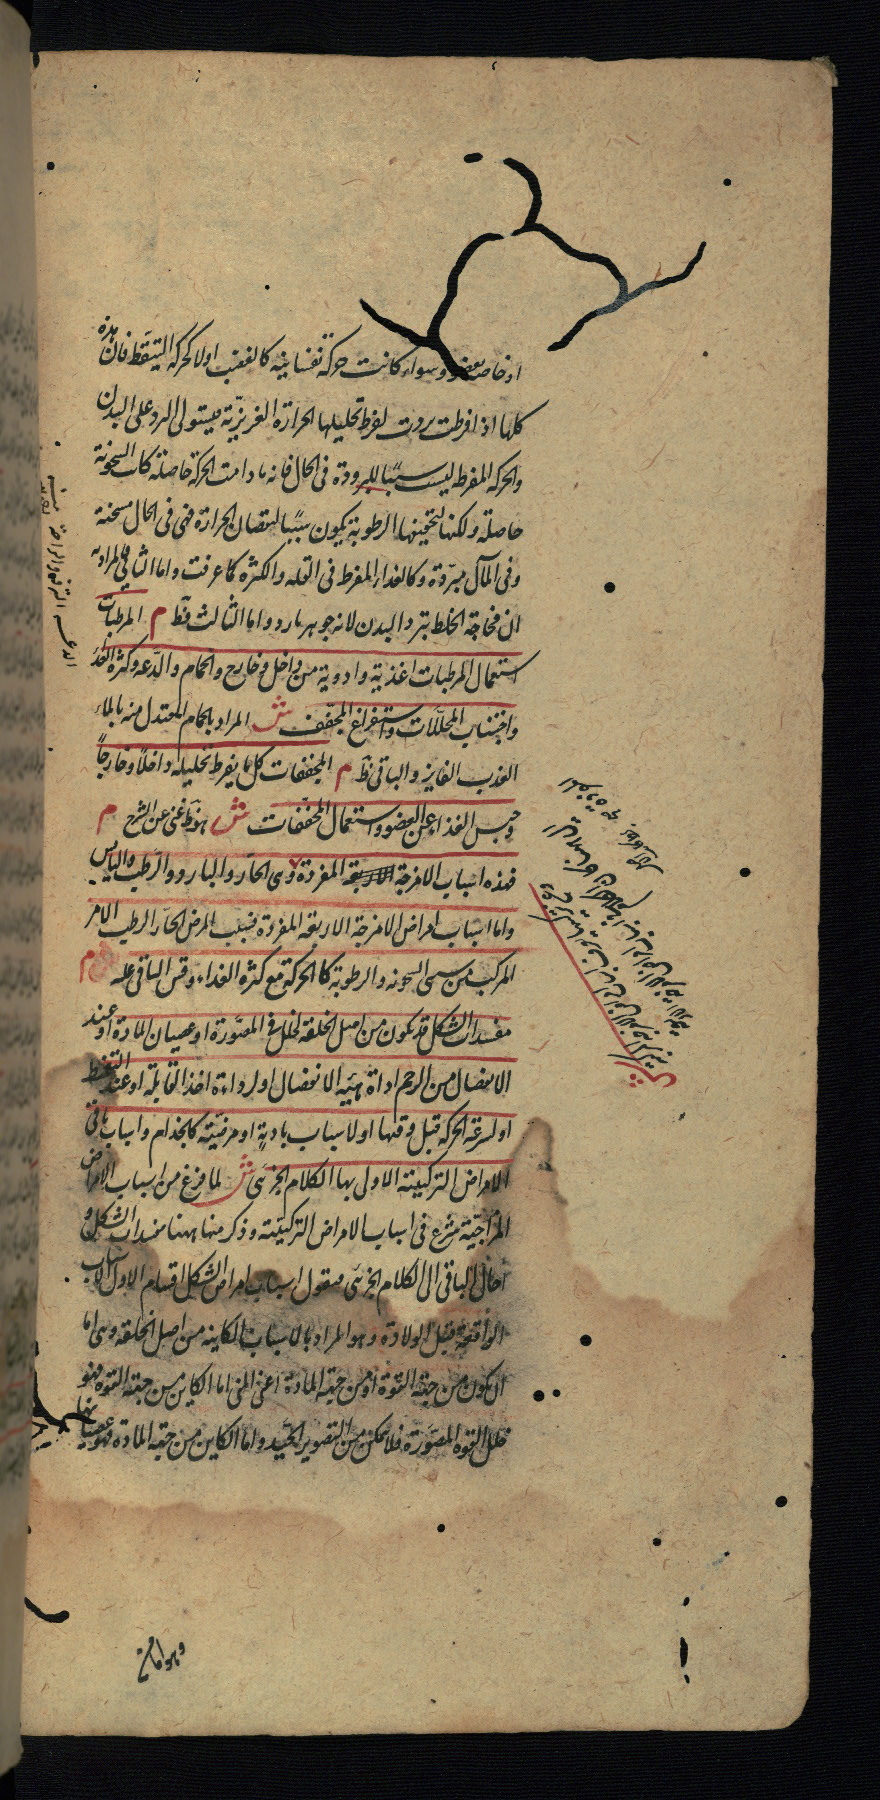 او خاصة بعضو وسواء كانت حركة نفسانية كالغضب اولا كحركة التيقظ فان هذه
كلها اذا افرطت بردت لفرط تحليلها الحرارة الغريزية فيستولى البرد على البدن
والحركه المفرطه ليست سببا للبرودة فى الحال فانه مادامت الحركة حاصلة كانت السخونة
حاصلة ولكنها لتحقينها الرطوبة يكون سببا لنقصان الحرارة فهى فى الحال مسخنة
وفى المآل مبردة وكالغذاء المفرط فى القله والكثرة كما عرفت واما الثانى فالمراد به
ان فجاجة الخلط تبرد البدن لانه جوهر بارد واما الثالث فظ م المرطبات
استعمال المرطبات اغذية وادوية من داخل وخارج والحمام والدعه وكثرة الغذاء
واجتناب المحللات واستفراغ المجفف ش المراد بالحمام المعتدل منه بالماء
العذب الفايز والباقى ظ م المجففات كل ما يفرط تحليله داخلا وخارجا
وحبس الغذاء عن العضو واستعمال المجففات ش هو ظ غنى عن الشرح م
فهذه اسباب الامزجة الاربعة المفردة وهى الحار والبارد والرطب واليابس
واما اسباب امراض الامزجة الاربعة المفردة فسبب المرض الحار الرطب الامر
المركب من مسمى السخونه والرطوبة كالحركة مع كثرة الغذاء وقس الباقى عليه م
مفسدات الشكل قد يكون من اصل الخلقة لخلل فى المصورة او عصيان المادة او عند
الانفصال من الرحم لرداة هيئة الانفصال او لرداءة اخذ القابلة او عند التقميط
او لسرعة الحركه قبل وقتها او لاسباب بادية او مرضية كالجذام واسباب باقى
الامراض التركيبية الاولى بها الكلام الجزئى ش لما فرغ من اسباب الامراض
المزاجية شرع فى اسباب الامراض التركيبية وذكر منها ههنا مفسدات الشكل و
احال الباقى الى الكلام الجزئى فنقول اسباب امراض الشكل اقسام الاول الاسباب
الواقعة قبل الولادة وهو المراد بالاسباب الكاينة من اصل الخلقة وهى اما
ان يكون من جهة القوة او من جهة المادة اعنى المنى اما الكاين من جهة القوة فهو
خلل القوة المصورة فلا يتمكن من التصوير الجيد واما الكاين من جهة المادة فهو عصيانها